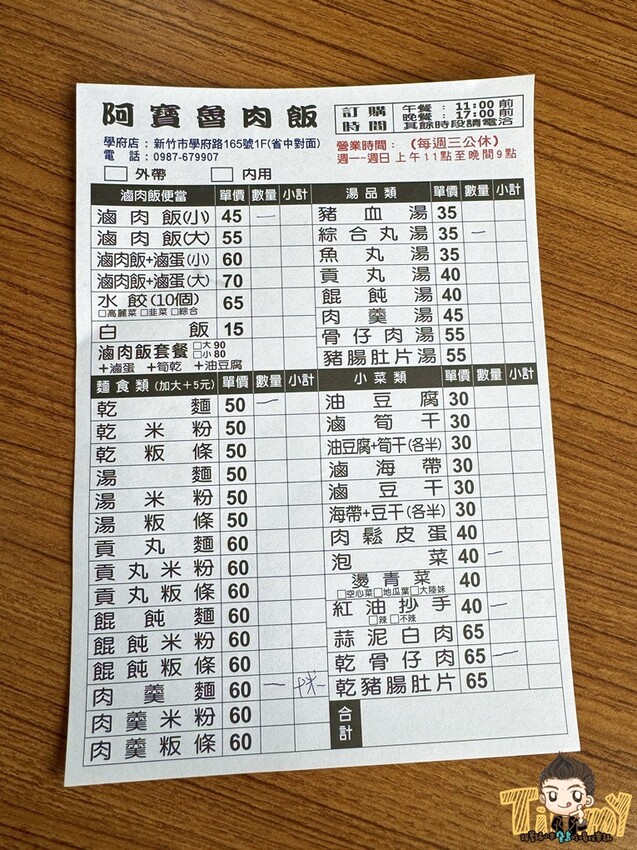 阿寶魯肉飯
訂購時間
午餐：11:00前
晚餐：17:00前
其餘時段請電洽
學府店：新竹市學府路165號1F(省中對面)
電話：0987-679907
營業時間：(每週三公休)
週一~週日 上午11點至晚間9點
□外帶 □內用
滷肉飯便當 單價 數量 小計
滷肉飯(小) 45 一
滷肉飯(大) 55
滷肉飯+滷蛋(小) 60
滷肉飯+滷蛋(大) 70
水餃(10個) 65
□高麗菜□韭菜□綜合
白飯 15
滷肉飯套餐 □大90 □小80
+滷蛋 +筍乾 +油豆腐
湯品類 單價 數量 小計
豬血湯 35
綜合丸湯 35 一
魚丸湯 35
貢丸湯 40
餛飩湯 40
肉羹湯 45
骨仔肉湯 55
豬腸肚片湯 55
麵食類 (加大+5元) 單價 數量 小計
乾麵 50 一
乾米粉 50
乾粄條 50
湯麵 50
湯米粉 50
湯粄條 50
貢丸麵 60
貢丸米粉 60
貢丸粄條 60
餛飩麵 60
餛飩米粉 60
餛飩粄條 60
肉羹麵 60 一
肉羹米粉 60
肉羹粄條 60
小菜類 單價 數量 小計
油豆腐 30
滷筍干 30
油豆腐+筍干(各半) 30
滷海帶 30
滷豆干 30
海帶+豆干(各半) 30
肉鬆皮蛋 40
泡菜 40 一
燙青菜 40
□空心菜□地瓜葉□大陸妹
紅油抄手 40 一
□辣 □不辣
蒜泥白肉 65
乾骨仔肉 65 一
乾豬腸肚片 65
合計